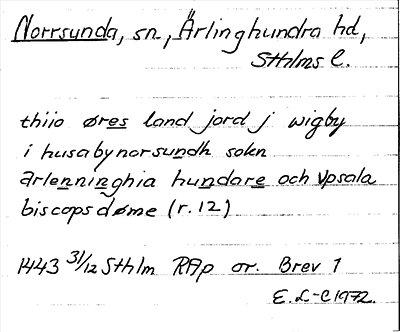 Norrsunda, sn, Ärlinghundra hd,
Sthlms l.
thiio øres land jord j wigby
i husabynorsundh sokn
ærlenninghia hundare och vpsala
biscopsdøme (r. 12)
1443 31/12 Sthlm RAp or. Brev 1
E. L-C 1972.